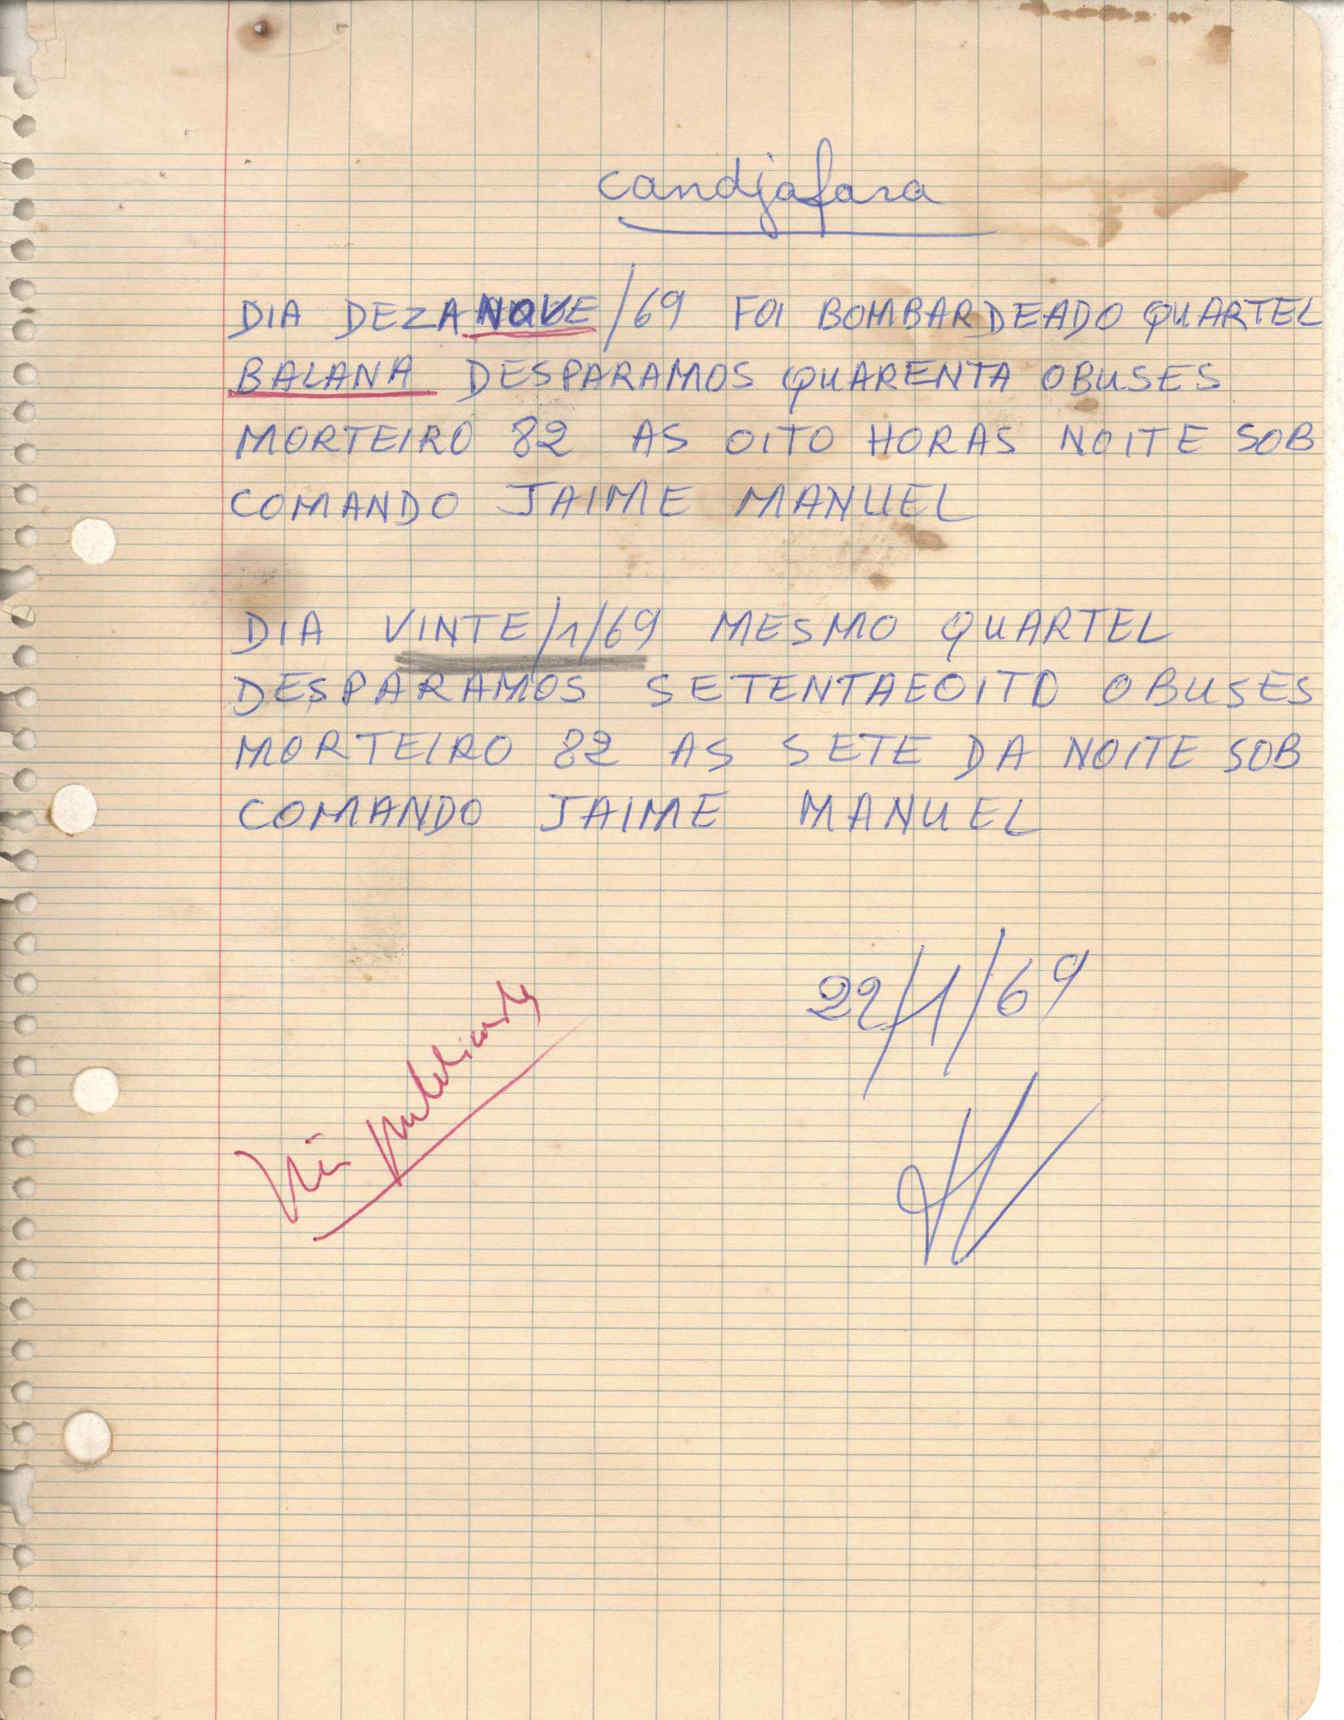 candjafara
DIA DEZANOVE/69 FOI BOMBARDEADO QUARTEL
BALANA DESPARAMOS QUARENTA OBUSES
MORTEIRO 82 AS OITO HORAS NOITE SOB
COMANDO JAIME MANUEL
DIA VINTE/1/69 MESMO QUARTEL
DESPARAMOS SETENTAEOITO OBUSES
MORTEIRO 82 AS SETE DA NOITE SOB
COMANDO JAIME MANUEL
22/1/69